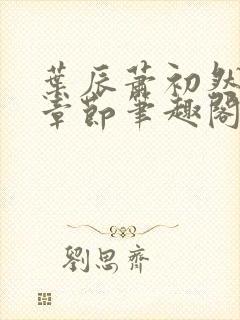 葉辰蕭初然
章節筆趣閣
劉思齊